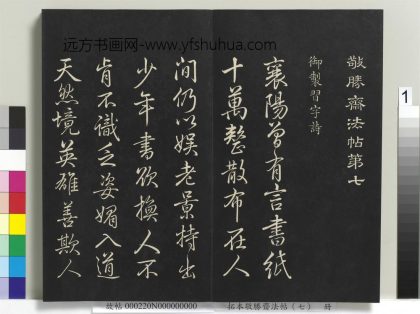 远方书画网-www.yfshuhua.com
敬勝齋法帖第七
御製習字詩
襄陽曾有言書紙
十萬整散布在人
間仍以娱老景持出
少年書欲換人不
肯不識乏姿媚入道
天然境英雄善欺人
故帖 000220N000000000 拓本敬勝齋法帖（七） 冊
1